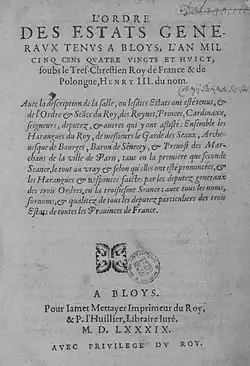 L'ORDRE
DES ESTATS GENE-
RAVX TENVS A BLOYS, L'AN MIL
CINQ CENS QUATRE VINGTS ET HVICT,
soubs le Tres-Chrestien Roy de France & de
Polongne, HENRY III. du nom.
Avec la description de la salle, ou lesdits Estats ont esté tenus, &
de l'Ordre & Seáce du Roy, des Roynes, Princes, Cardinaux,
seigneurs, deputez, & autres qui y ont assisté: Ensemble les
Harangues du Roy, de messieurs le Garde des Seaux, Arche-
uesque de Bourges, Baron de Senecey, & Preuost des Mar-
chans de la ville de Paris, tant en la premiere que seconde
Seance, le tout au vray & selon qu'elles ont esté prononcées, &
les Harangues & responses faictes par les deputez generaux
des trois Ordres, en la troisiesme Seance: auec tous les noms,
surnoms, & qualitez de tous les deputez particuliers des trois
Estats de toutes les Prouinces de France.
A BLOYS.
Pour Iamet Mettayer Imprimeur du Roy,
& P. l'Huillier, Libraire Iuré.
M. D. LXXXIX.
AVEC PRIVILEGE DV ROY.